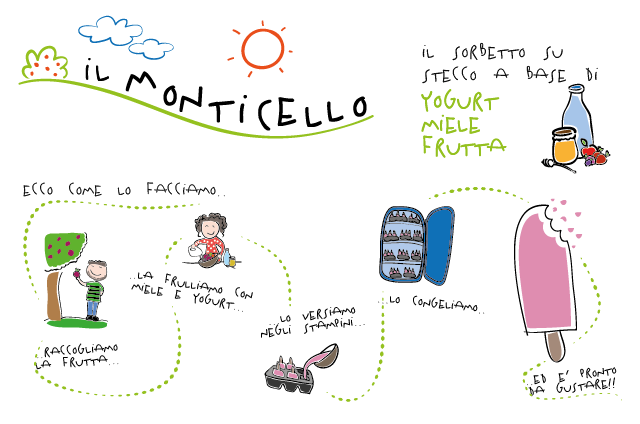 IL MONTICELLO
IL SORBETTO SU
STECCO A BASE DI
YOGURT
MIELE
FRUTTA
ECCO COME LO FACCIAMO..
..RACCOGLIAMO
LA FRUTTA...
..LA FRULLIAMO CON
MIELE E YOGURT...
...LO VERSIAMO
NEGLI STAMPINI...
...LO CONGELIAMO..
...ED E' PRONTO
DA GUSTARE!!